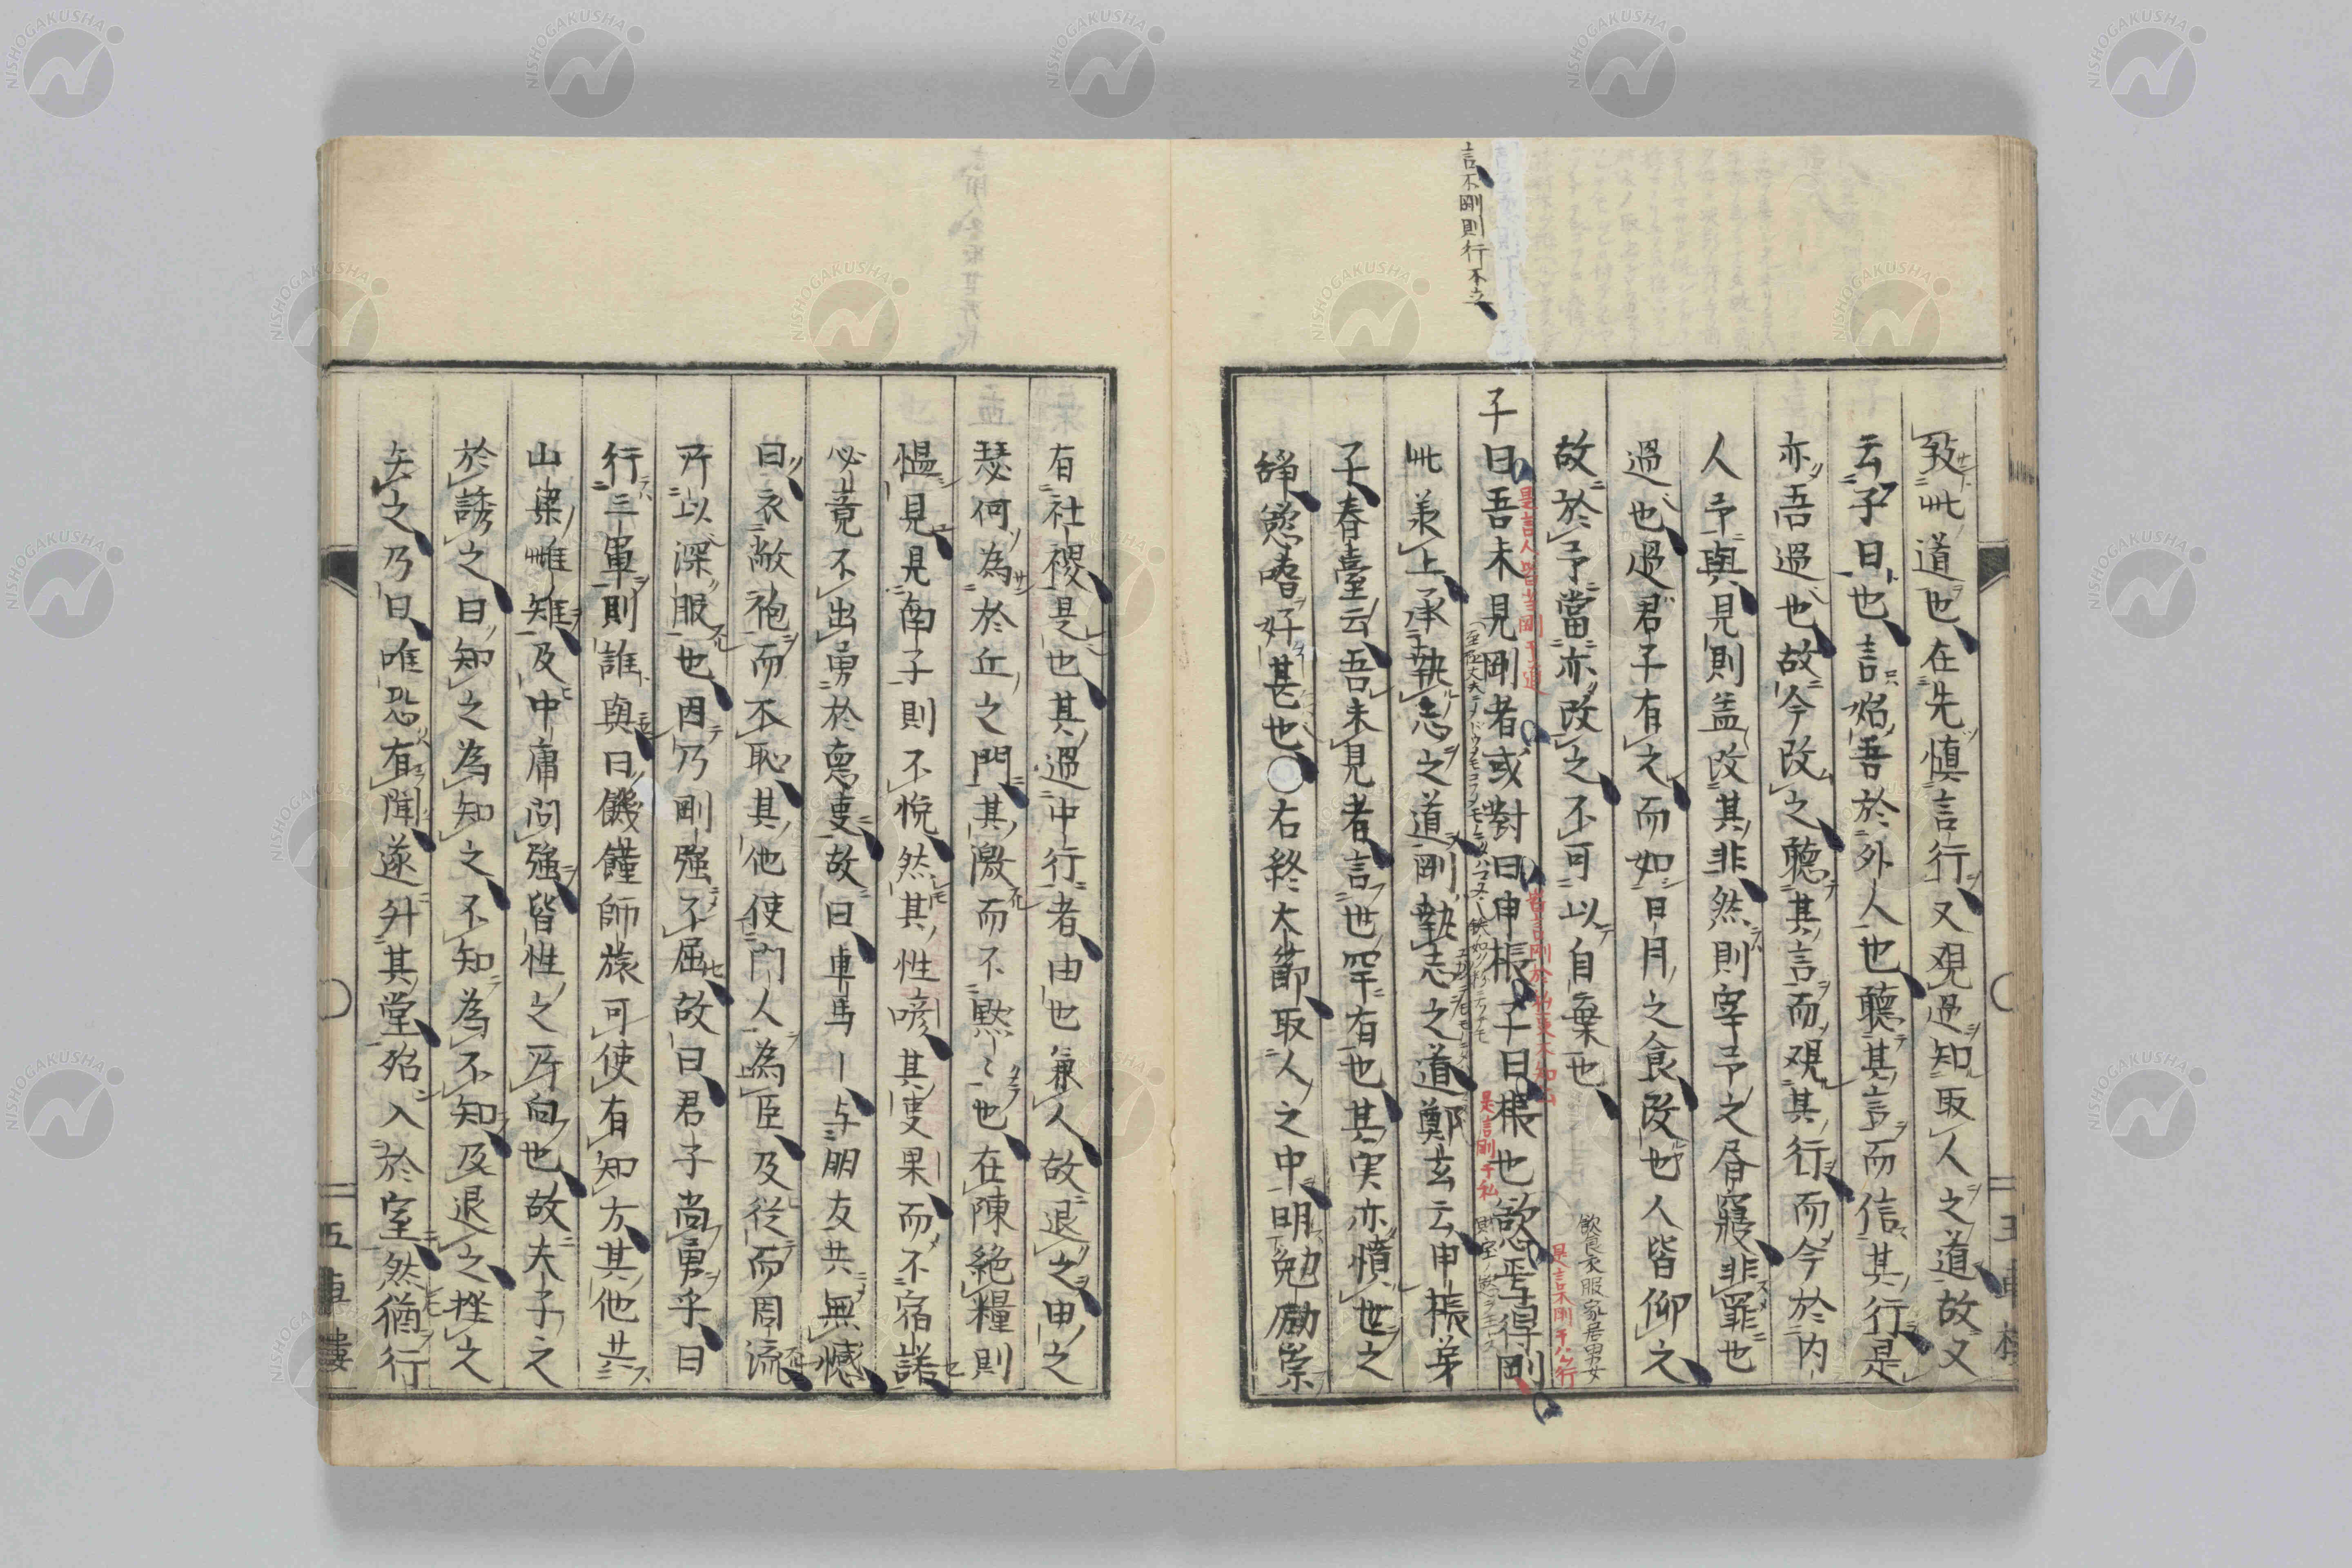 言不剛則行不立
致此道也在先慎言行又観過知取人之道故又
云子曰也言始吾於外人也聽其言而信其行是
亦吾過也故今改之聽其言而観其行而今於内
人予與見則盖改其非然則宰予之昏寢非罪也
過也過君子有之而如日月之食改也人皆仰之
故於予當亦改之不可以自棄也
飲食衣服家居男女
是言不剛于公行
子曰吾未見剛者或對曰申棖子曰棖也慾焉得剛
是言剛于私
此義上承執志之道剛執志之道鄭玄云申棖弟
子春臺云吾未見者言世罕有也其実亦憤世之
辞慾嗜好甚也〇右終大節取人之中明勉励崇
有社稷是也其過中行者由也兼人故退之申之
瑟何為於丘之門其激而不黙〻也在陳絶糧則
慍見見南子則不悦然其性喭其隻果而不宿諾
必竟不出勇於悳隻故曰車馬〡与朋友共無憾
曰衣敝袍而不恥其他使門人為臣及從而周流
所以深服也因乃剛強不屈故曰君子尚勇乎曰
行三軍則誰與曰饑饉師旅可使有知方其他共
山梁雌雉及中庸問強皆性之所向也故夫子之
於誘之曰知之為知之不知為不知及退之挫之
矣之乃曰唯恐有聞遂升其堂殆入於室然猶行
五車樓
NISHOGAKUSHA